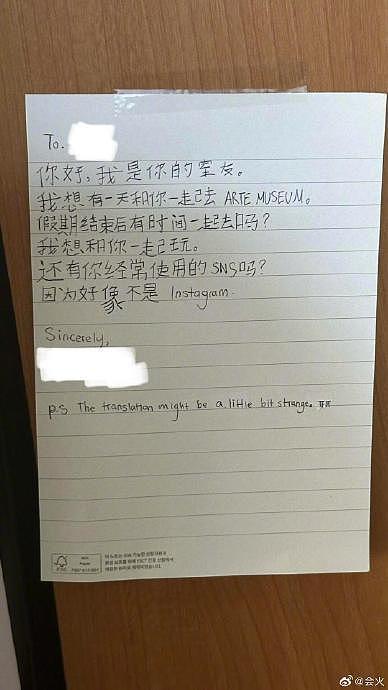 To.
你好、我是你的室友。
我想有一天和你一起去 ARTE MUSEUM。
假期结束后有时间一起去吗?
我想和你一起玩。
还有你经常使用的 SNS吗?
因为好像不是 Instagram.
Sincerely,
p.s The translation might be a little bit strange. ㅠㅠ
FSC
@会火